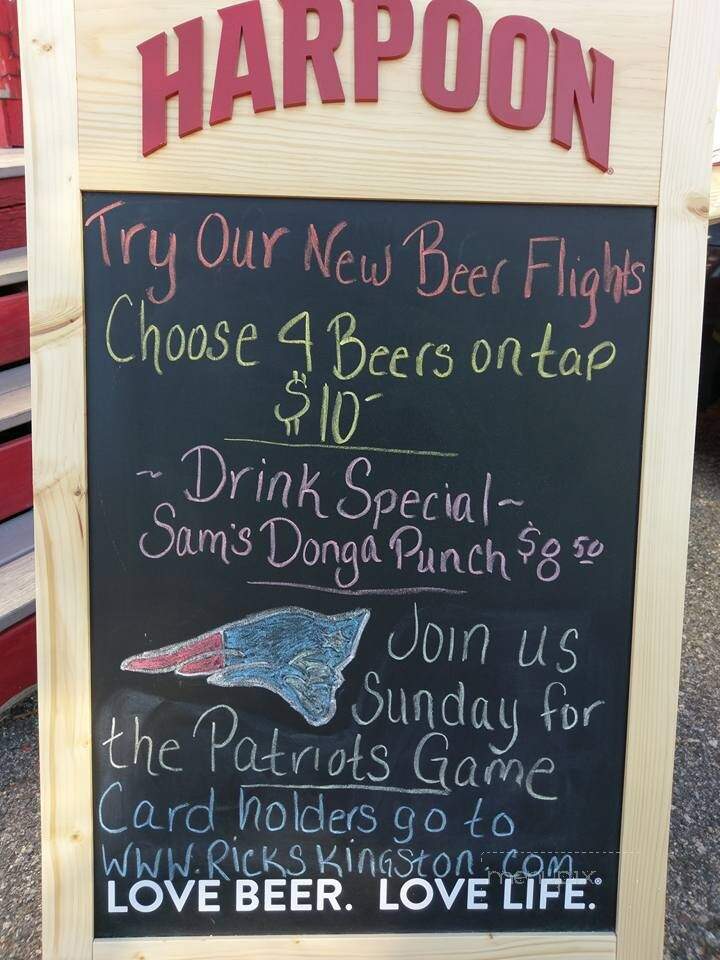 HARPOON
Try Our New Beer Flights
Choose 4 Beers on tap
$10-
~ Drink Special ~
Sam's Donga Punch $8 50
Join us
Sunday for
the Patriots Game
Card holders go to
WWW.RICKSKINGSTON.COM
menupix
LOVE BEER. LOVE LIFE.®